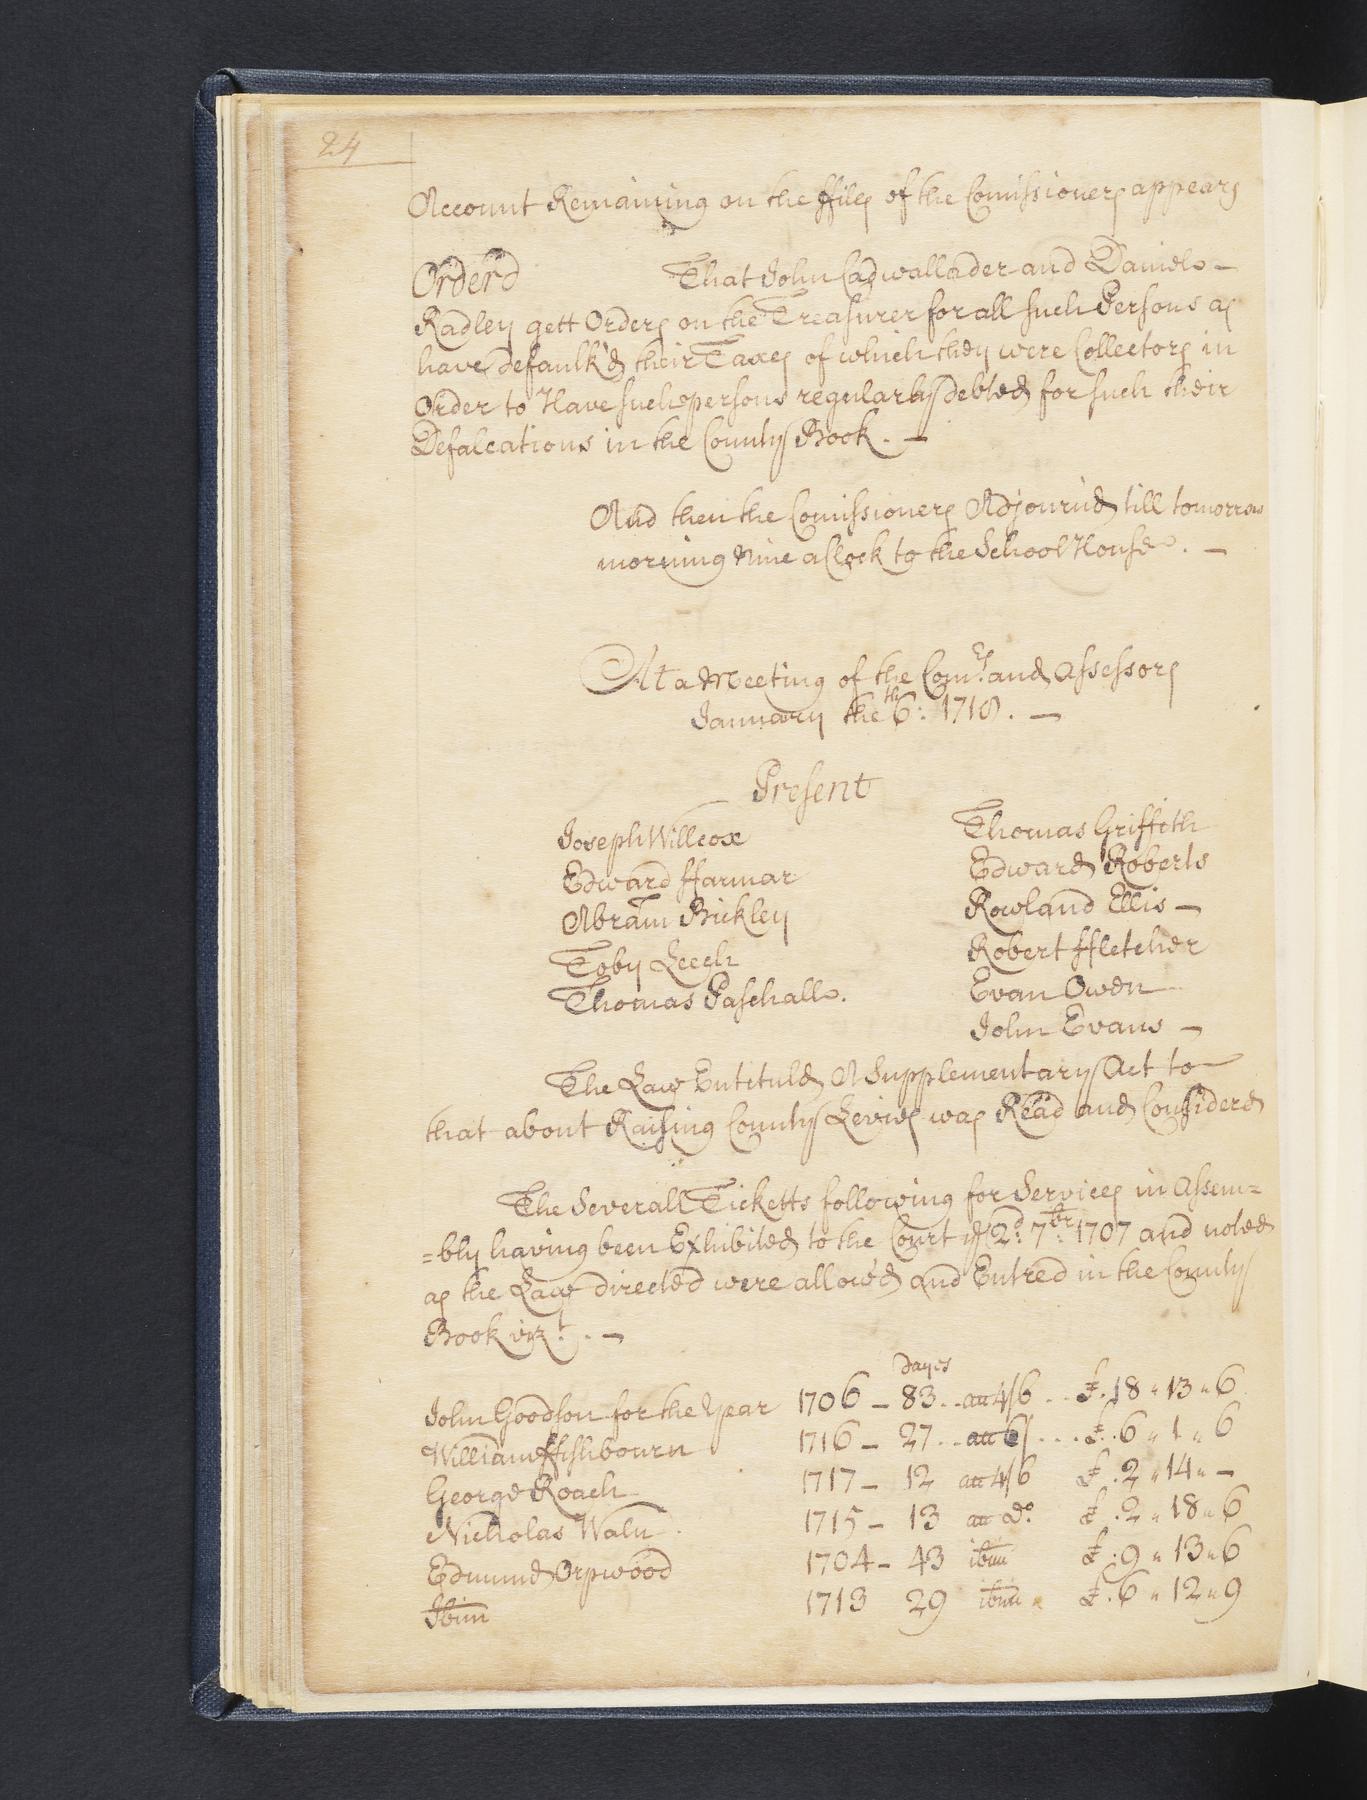 24
Account Remaining on the ffiles of the Comissioners appears
Orderd That John Cadwallader and Daniel -
Radley gett Orders on the Treasurer for all such Persons as
have Defaulk'd their Taxes of which they were Collectors in
Order to Have such persons regularly Debted for such their
Defalcations in the County Book. -
And then the Comissioners Adjourn'd till tomorrow
morning Nine aClock to the School House. -
At a Meeting of the Com.rs and Assessors
January the 6th: 1718. -
Present
Joseph Willcox Thomas Griffith
Edward ffarmar Edward Roberts
Abram Bickley Rowland Ellis -
Toby Leech Robert ffletcher
Thomas Paschall. Evan Owen
John Evans -
The Law Entituld A Supplementary Act to
that about Raising County Levies was Read and Considerd
The Severall Ticketts following for Services in Assem=
=bly having been Exhibited to the Court ye 2d: 7br: 1707 and noted
as the Law directed were allow'd and Entred in the County
Book vizt. -
Dayes
John Goodson for the Year 1706 - 83.. att 4/6 .. £. 18 " 13 " 6
William ffishbourn 1716 - 27.. att 6/ .... £. 6 " 1 " 6
George Roach 1717 - 12 att 4/6 £. 2 " 14 " -
Nicholas Waln 1715 - 13 att Do. £. 2 " 18 " 6
Edmund Orpwood 1704 - 43 ibim £. 9 " 13 " 6
Ibim 1713 29 ibim £. 6 " 12 " 9